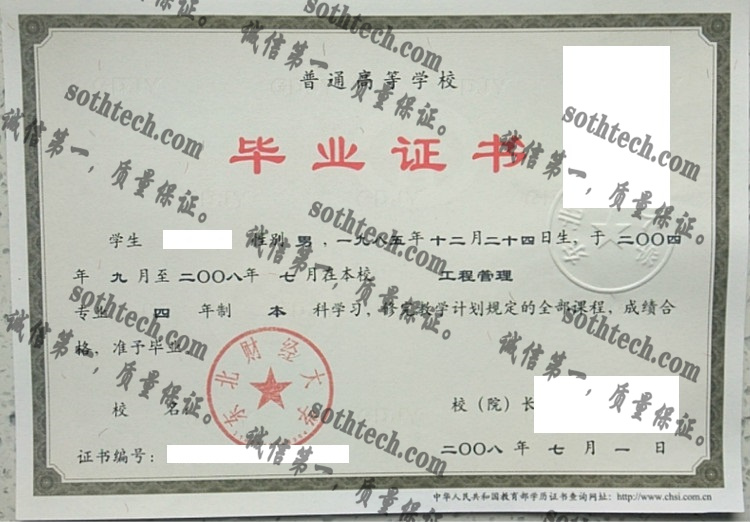 普通高等学校
毕业证书
学生 性别 男,一九八五年十二月二十四日生,于二〇〇四
年 九 月至 二〇〇八年 七 月在本校 工程管理
专业 四 年制 本 科学习,修完教学计划规定的全部课程,成绩合
格,准予毕业。
东北财经大学
校 名: 校(院)长
证书编号: 二〇〇八年 七 月 一 日
中华人民共和国教育部学历证书查询网址:http://www.chsi.com.cn
sothtech.com
诚信第一,质量保证。
sothtech.com
诚信第一,质量保证。
sothtech.com
诚信第一,质量保证。
sothtech.com
诚信第一,质量保证。
sothtech.com
诚信第一,质量保证。
sothtech.com
诚信第一,质量保证。
sothtech.com
诚信第一,质量保证。